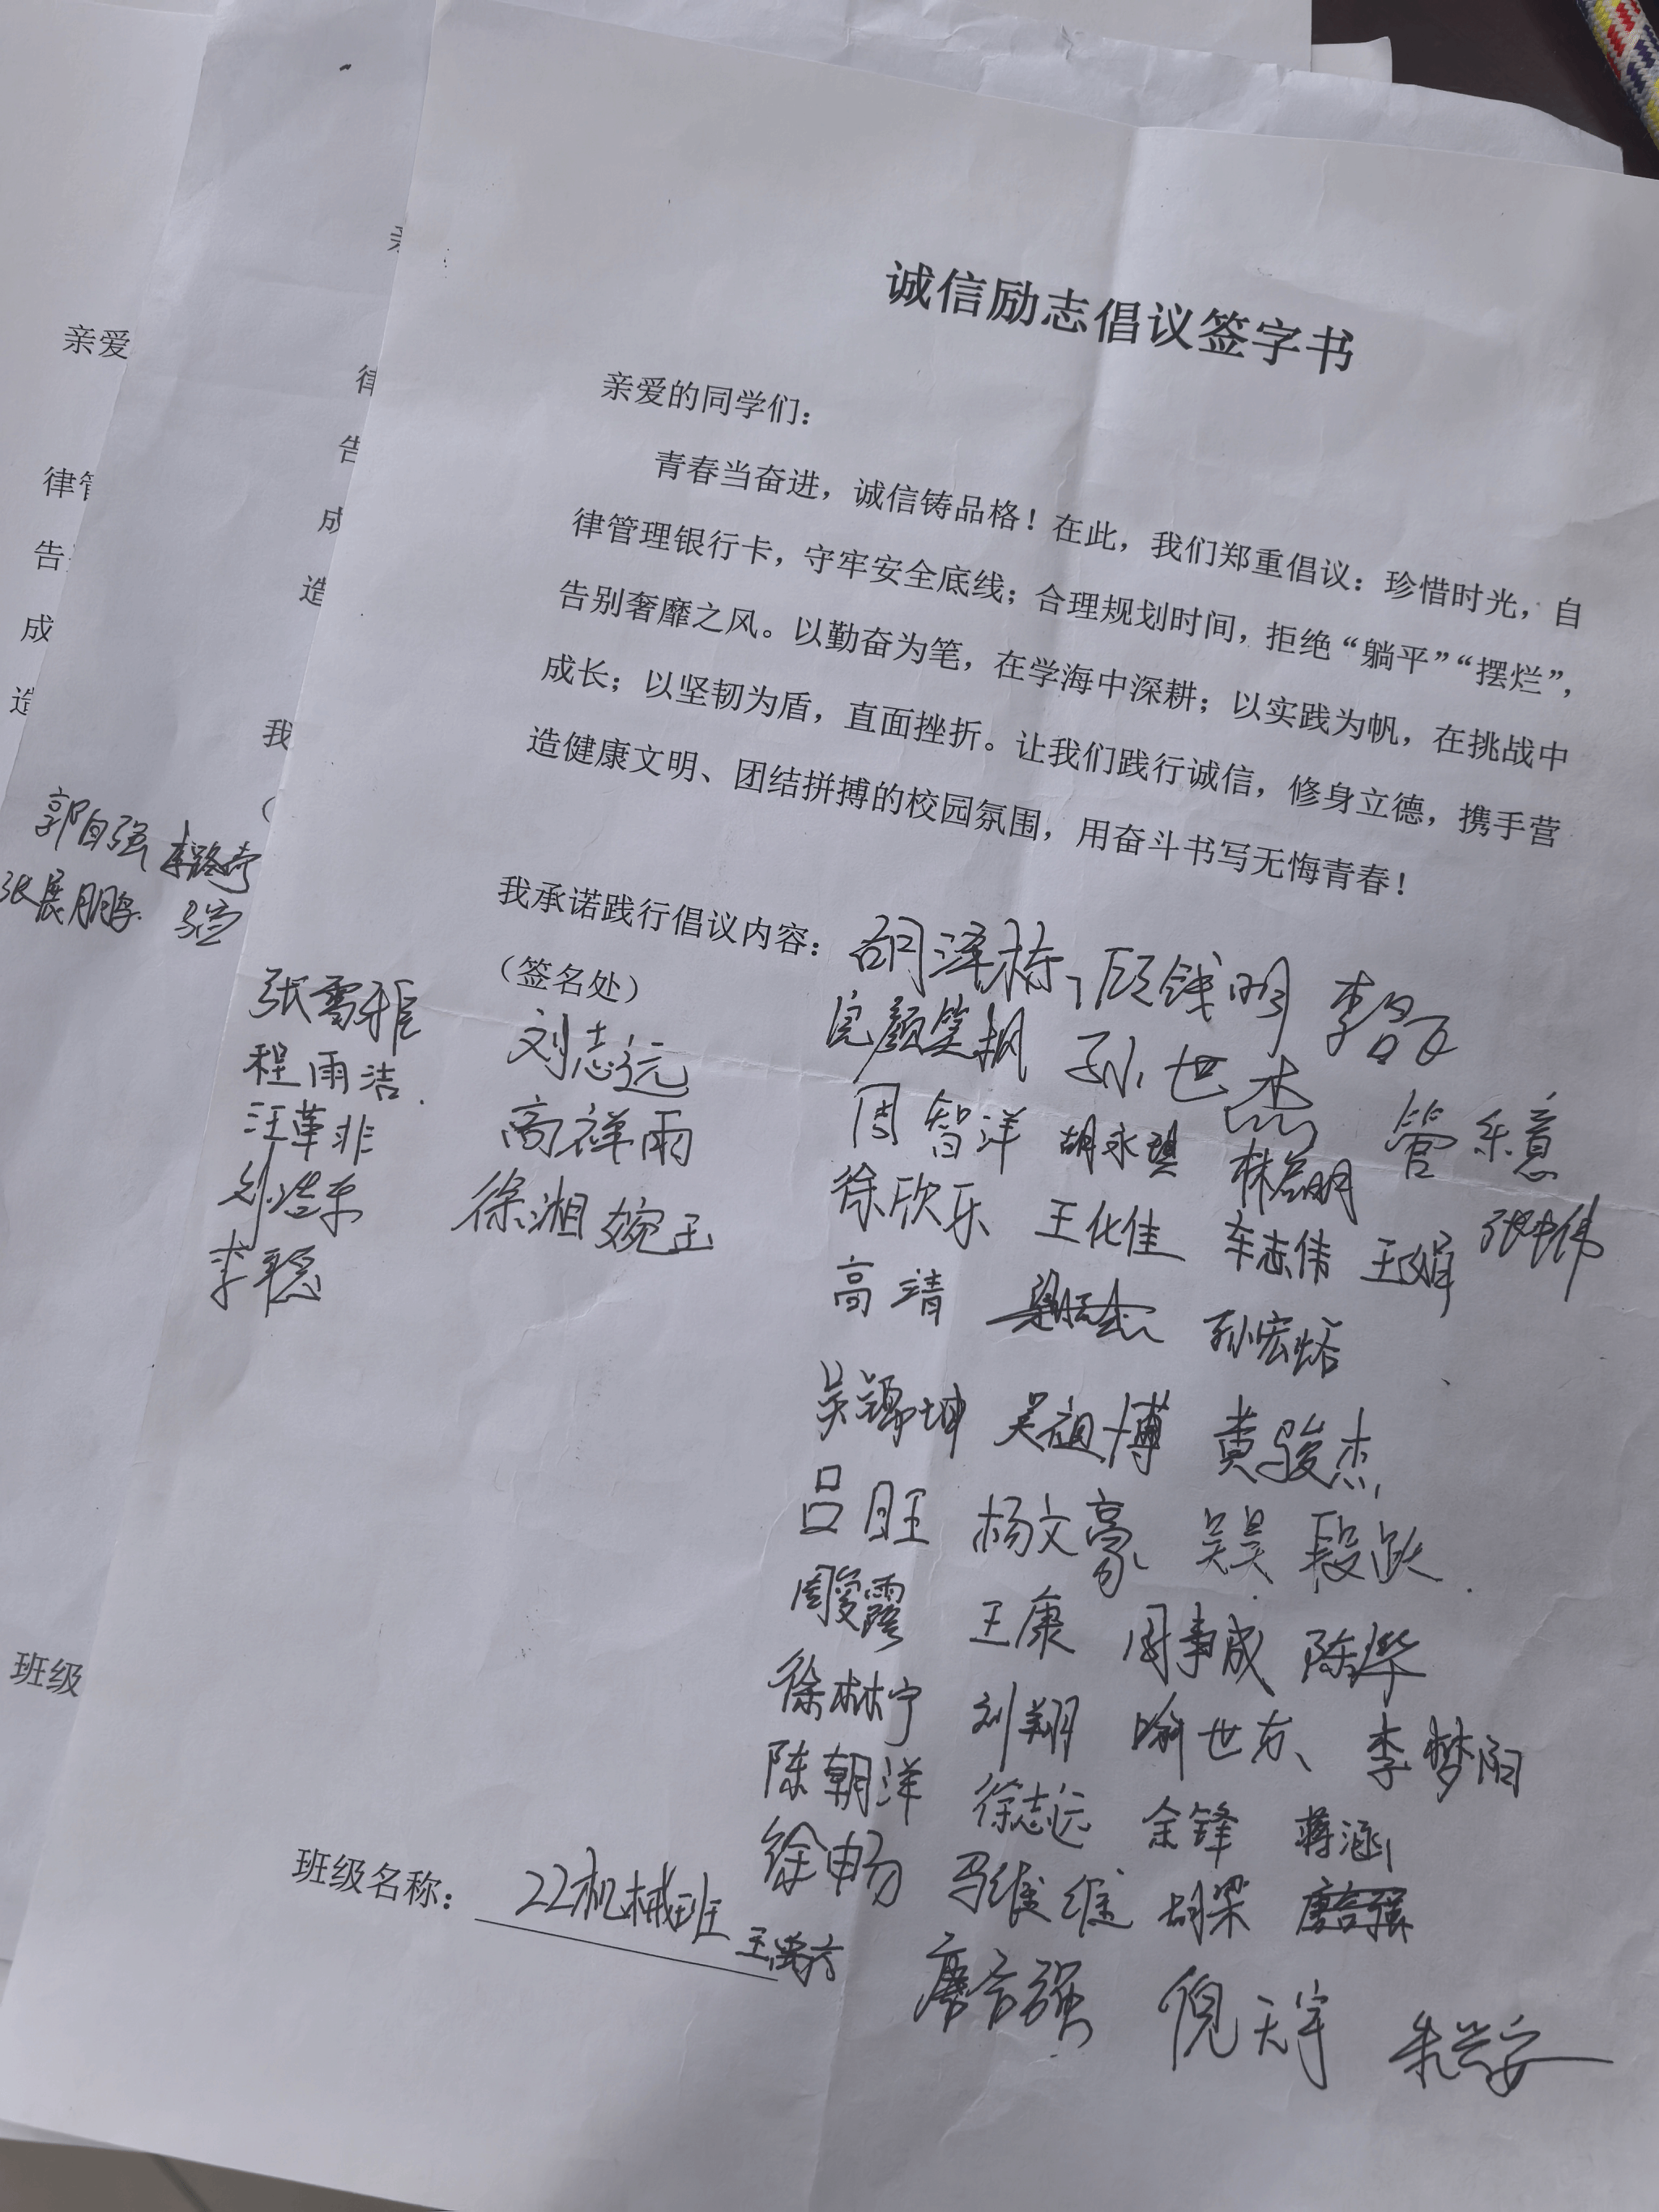 诚信励志倡议签字书
亲爱的同学们：
青春当奋进，诚信铸品格！在此，我们郑重倡议：珍惜时光，自
律管理银行卡，守牢安全底线；合理规划时间，拒绝“躺平”“摆烂”，
告别奢靡之风。以勤奋为笔，在学海中深耕；以实践为帆，在挑战中
成长；以坚韧为盾，直面挫折。让我们践行诚信，修身立德，携手营
造健康文明、团结拼搏的校园氛围，用奋斗书写无悔青春！
我承诺践行倡议内容：胡泽栋 顾钱明
（签名处）
完颜笑枫 孙世杰 管乐意
张雪菲 刘志远 周智洋 胡永琪 林启明
程雨洁 高祥雨 徐欣乐 王化佳 车志伟 王娟 张中伟
汪革非 徐湘婉玉 高清 孙宏焰
刘浩东
李聪
吴祖博 黄骏杰
吕旺 杨文豪 吴昊 段跃
周爱露 王康 周事成 陈烨
徐林宁 刘翔 喻世东、李梦阳
陈朝洋 徐志远 余锋 蒋涵
徐申易 马维维 胡梁
倪天宇 朱兴安
班级名称：22机械班
亲爱
律管
告
成
造
郭自强 李路奇
张展鹏
班级
律
告
成
造
我
（